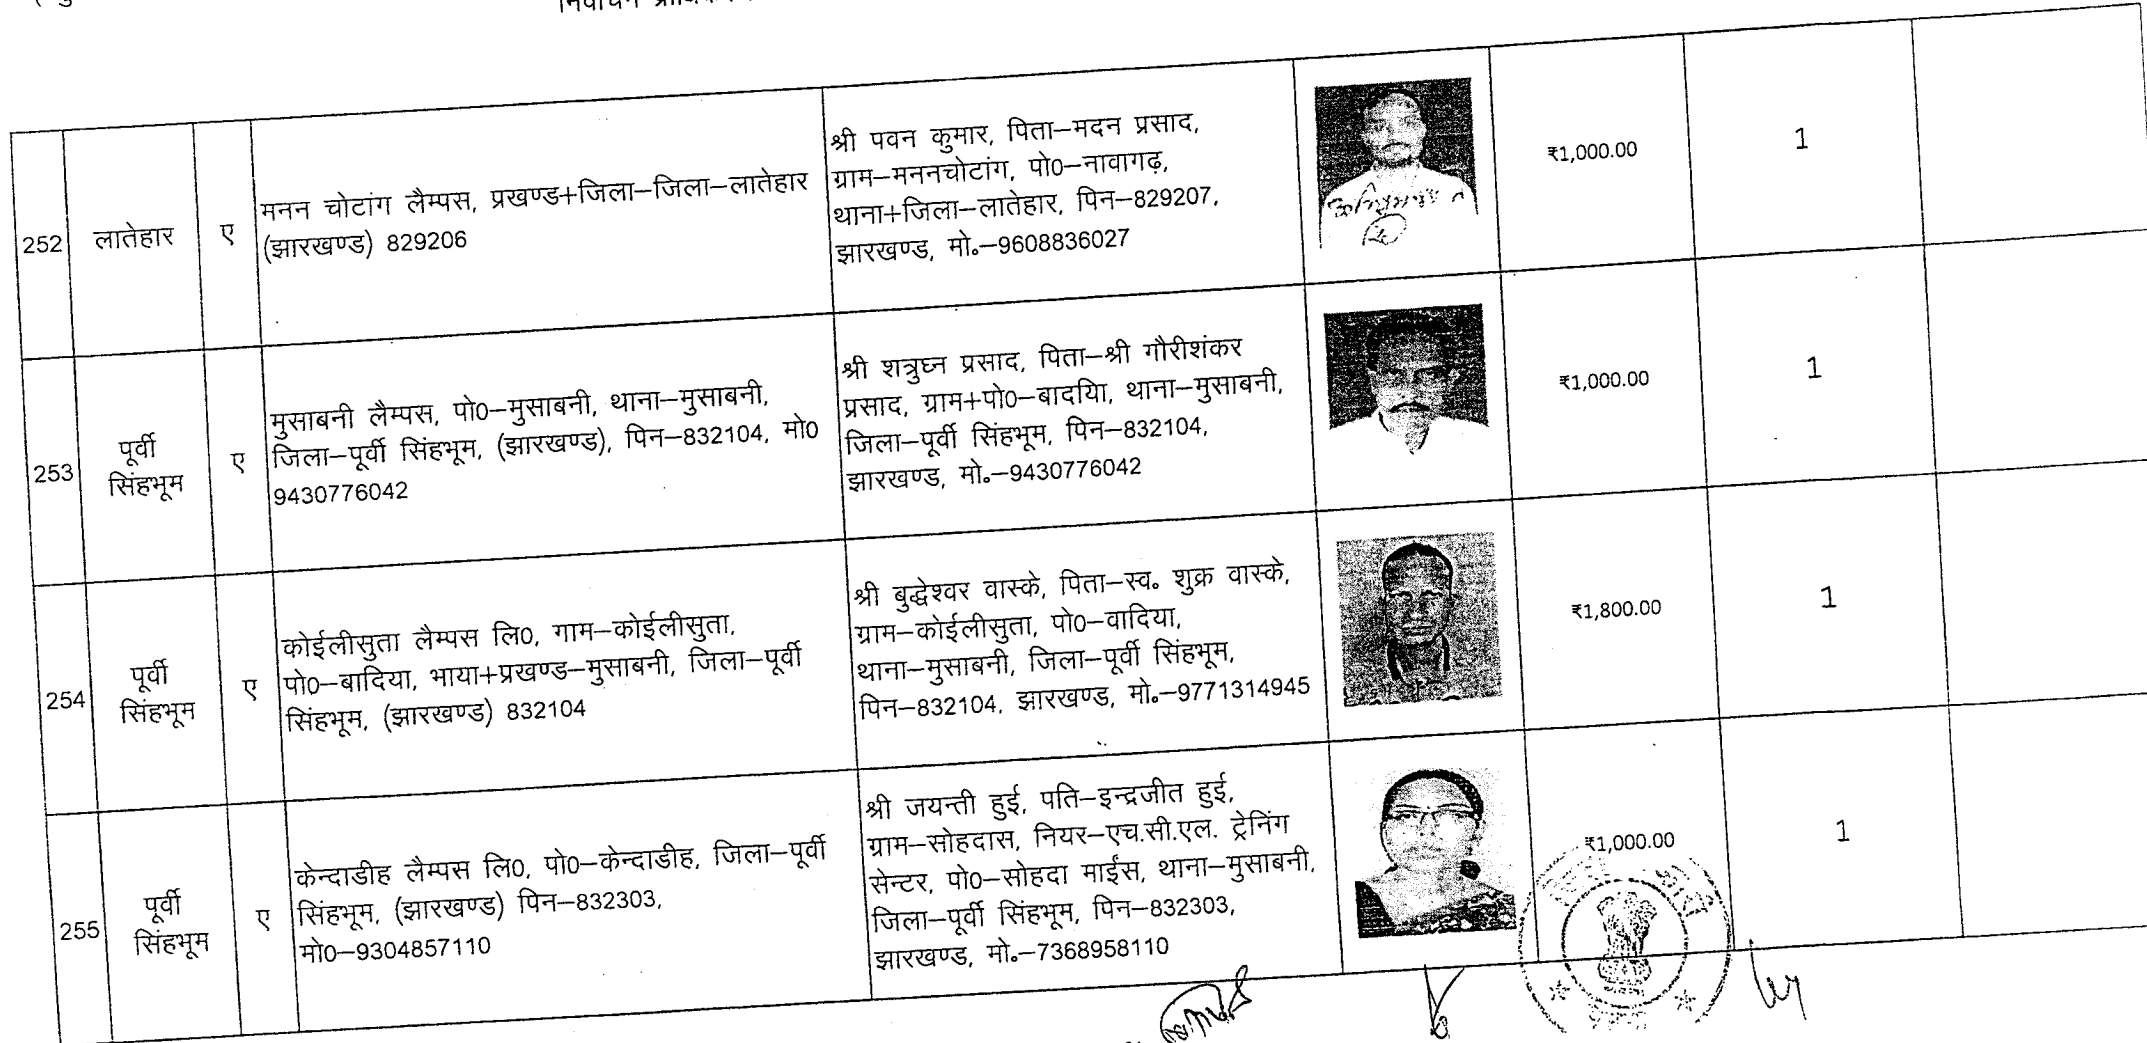 252
लातेहार
ए
मनन चोटांग लैम्पस, प्रखण्ड+जिला–जिला–लातेहार
(झारखण्ड) 829206
श्री पवन कुमार, पिता–मदन प्रसाद,
ग्राम–मननचोटांग, पो0–नावागढ़,
थाना+जिला–लातेहार, पिन–829207,
झारखण्ड, मो॰–9608836027
₹1,000.00
1
253
पूर्वी
सिंहभूम
ए
मुसाबनी लैम्पस, पो0–मुसाबनी, थाना–मुसाबनी,
जिला–पूर्वी सिंहभूम, (झारखण्ड), पिन–832104, मो0
9430776042
श्री शत्रुघ्न प्रसाद, पिता–श्री गौरीशंकर
प्रसाद, ग्राम+पो0–बादयिा, थाना–मुसाबनी,
जिला–पूर्वी सिंहभूम, पिन–832104,
झारखण्ड, मो॰–9430776042
₹1,000.00
1
254
पूर्वी
सिंहभूम
ए
कोईलीसुता लैम्पस लि0, गाम–कोईलीसुता,
पो0–बादिया, भाया+प्रखण्ड–मुसाबनी, जिला–पूर्वी
सिंहभूम, (झारखण्ड) 832104
श्री बुद्धेश्वर वास्के, पिता–स्व॰ शुक्र वास्के,
ग्राम–कोईलीसुता, पो0–वादिया,
थाना–मुसाबनी, जिला–पूर्वी सिंहभूम,
पिन–832104, झारखण्ड, मो॰–9771314945
₹1,800.00
1
255
पूर्वी
सिंहभूम
ए
केन्दाडीह लैम्पस लि0, पो0–केन्दाडीह, जिला–पूर्वी
सिंहभूम, (झारखण्ड) पिन–832303,
मो0–9304857110
श्री जयन्ती हुई, पति–इन्द्रजीत हुई,
ग्राम–सोहदास, नियर–एच.सी.एल. ट्रेनिंग
सेन्टर, पो0–सोहदा माईंस, थाना–मुसाबनी,
जिला–पूर्वी सिंहभूम, पिन–832303,
झारखण्ड, मो॰–7368958110
₹1,000.00
1